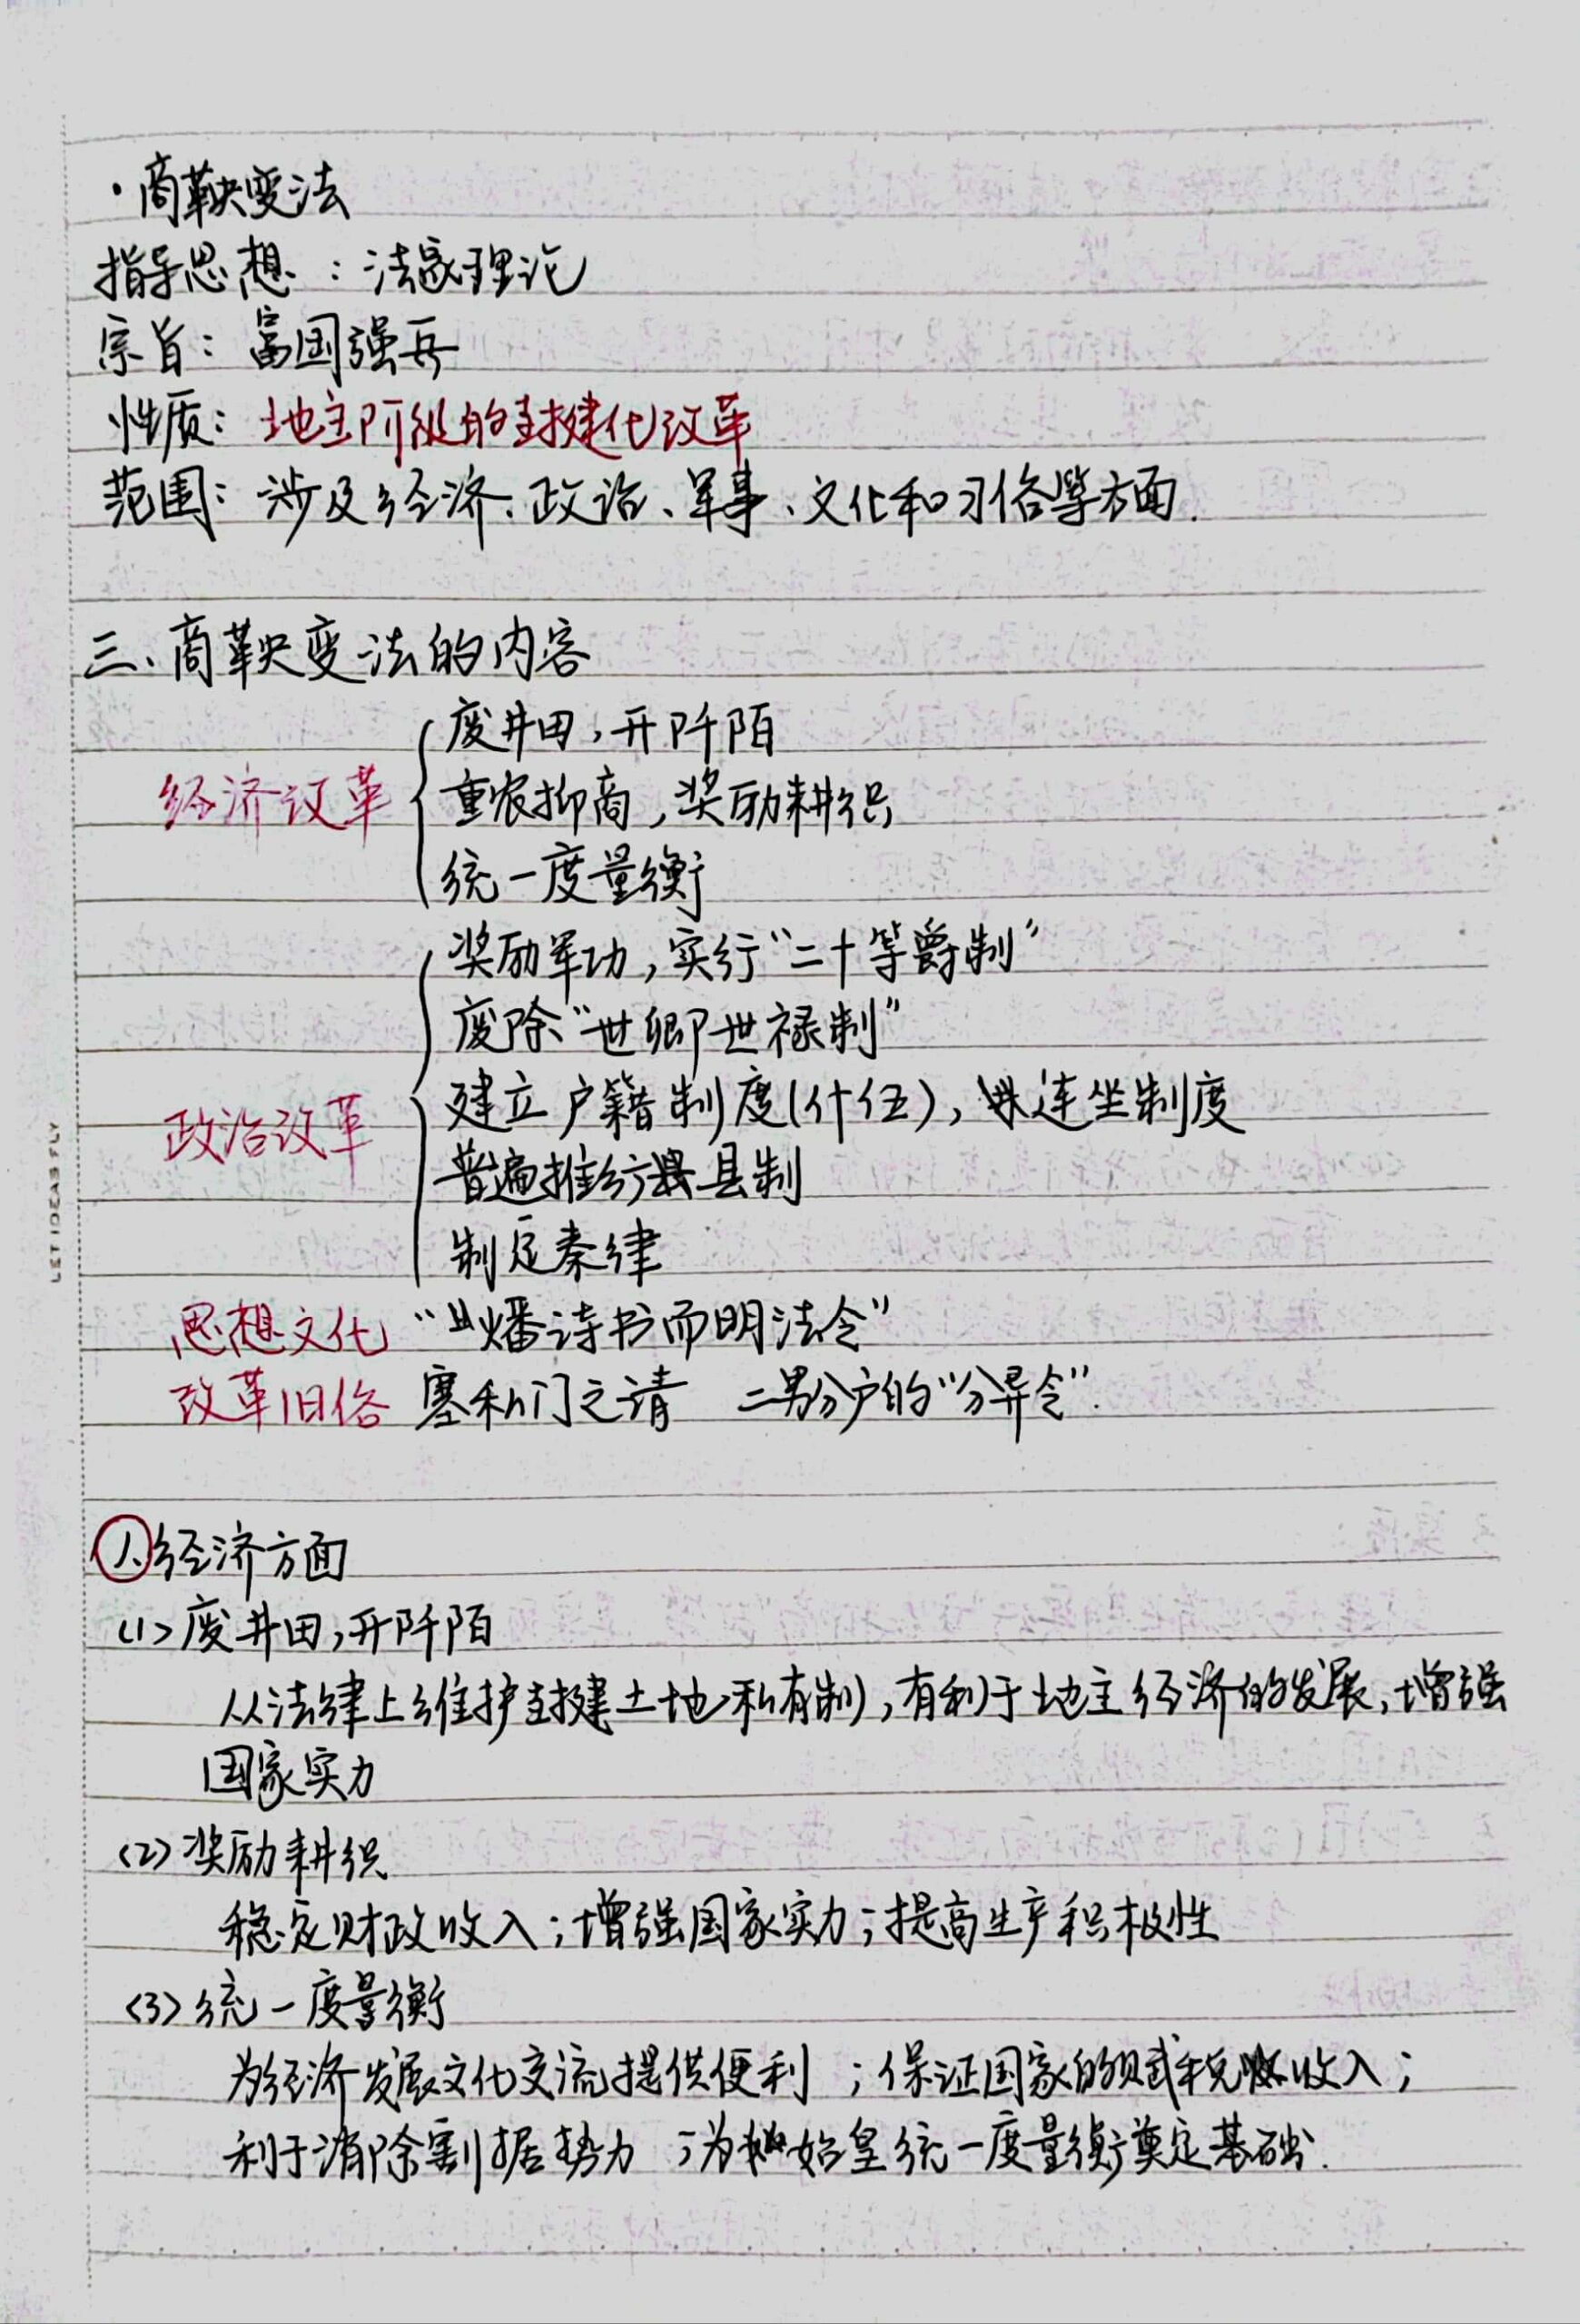 ·商鞅变法
指导思想：法家理论
宗旨：富国强兵
性质：地主阶级的封建化改革
范围：涉及经济、政治、军事、文化和习俗等方面.
三、商鞅变法的内容
经济改革
废井田，开阡陌
重农抑商，奖励耕织
统一度量衡
政治改革
奖励军功，实行“二十等爵制”
废除“世卿世禄制”
建立户籍制度(什伍)，连坐制度
普遍推行县制
制定秦律
思想文化 “燔诗书而明法令”
改革旧俗 塞私门之请 二男分户的“分异令”.
1、经济方面
(1)废井田，开阡陌
从法律上维护封建土地私有制，有利于地主经济的发展，增强
国家实力
(2)奖励耕织
稳定财政收入；增强国家实力；提高生产积极性
(3)统一度量衡
为经济发展文化交流提供便利；保证国家的赋税收入；
利于消除割据势力；为始皇统一度量衡奠定基础.
LET IDEAS FLY